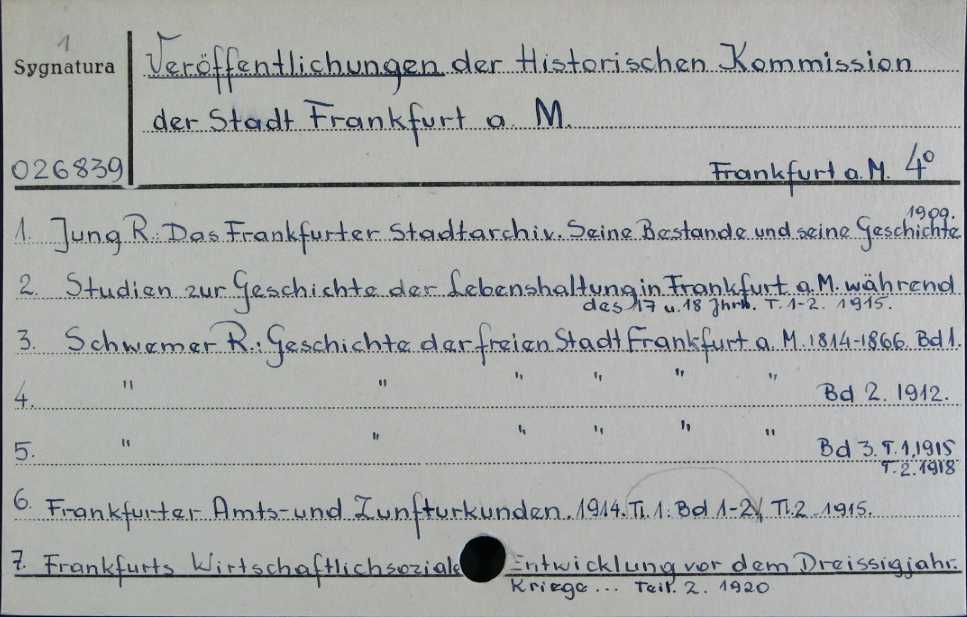 1
Sygnatura
026839
Veröffentlichungen der Historischen Kommission
der Stadt Frankfurt a. M.
Frankfurt a. M. 4°
1. Jung R.: Das Frankfurter Stadtarchiv. Seine Bestande und seine Geschichte 1909.
2. Studien zur Geschichte der Lebenshaltung in Frankfurt a. M. während
des 17 u. 18 Jhrh. T. 1-2. 1915.
3. Schwemer R.: Geschichte der freien Stadt Frankfurt a. M. 1814-1866. Bd 1.
4. " " " " " " Bd 2. 1912.
5. " " " " " " Bd 3. T. 1, 1915
T. 2. 1918
6. Frankfurter Amts- und Zunfturkunden. 1914. Tl. 1. Bd 1-2/ Tl. 2. 1915.
7. Frankfurts Wirtschaftlichsoziale Entwicklung vor dem Dreissigjahr.
Kriege... Teil. 2. 1920